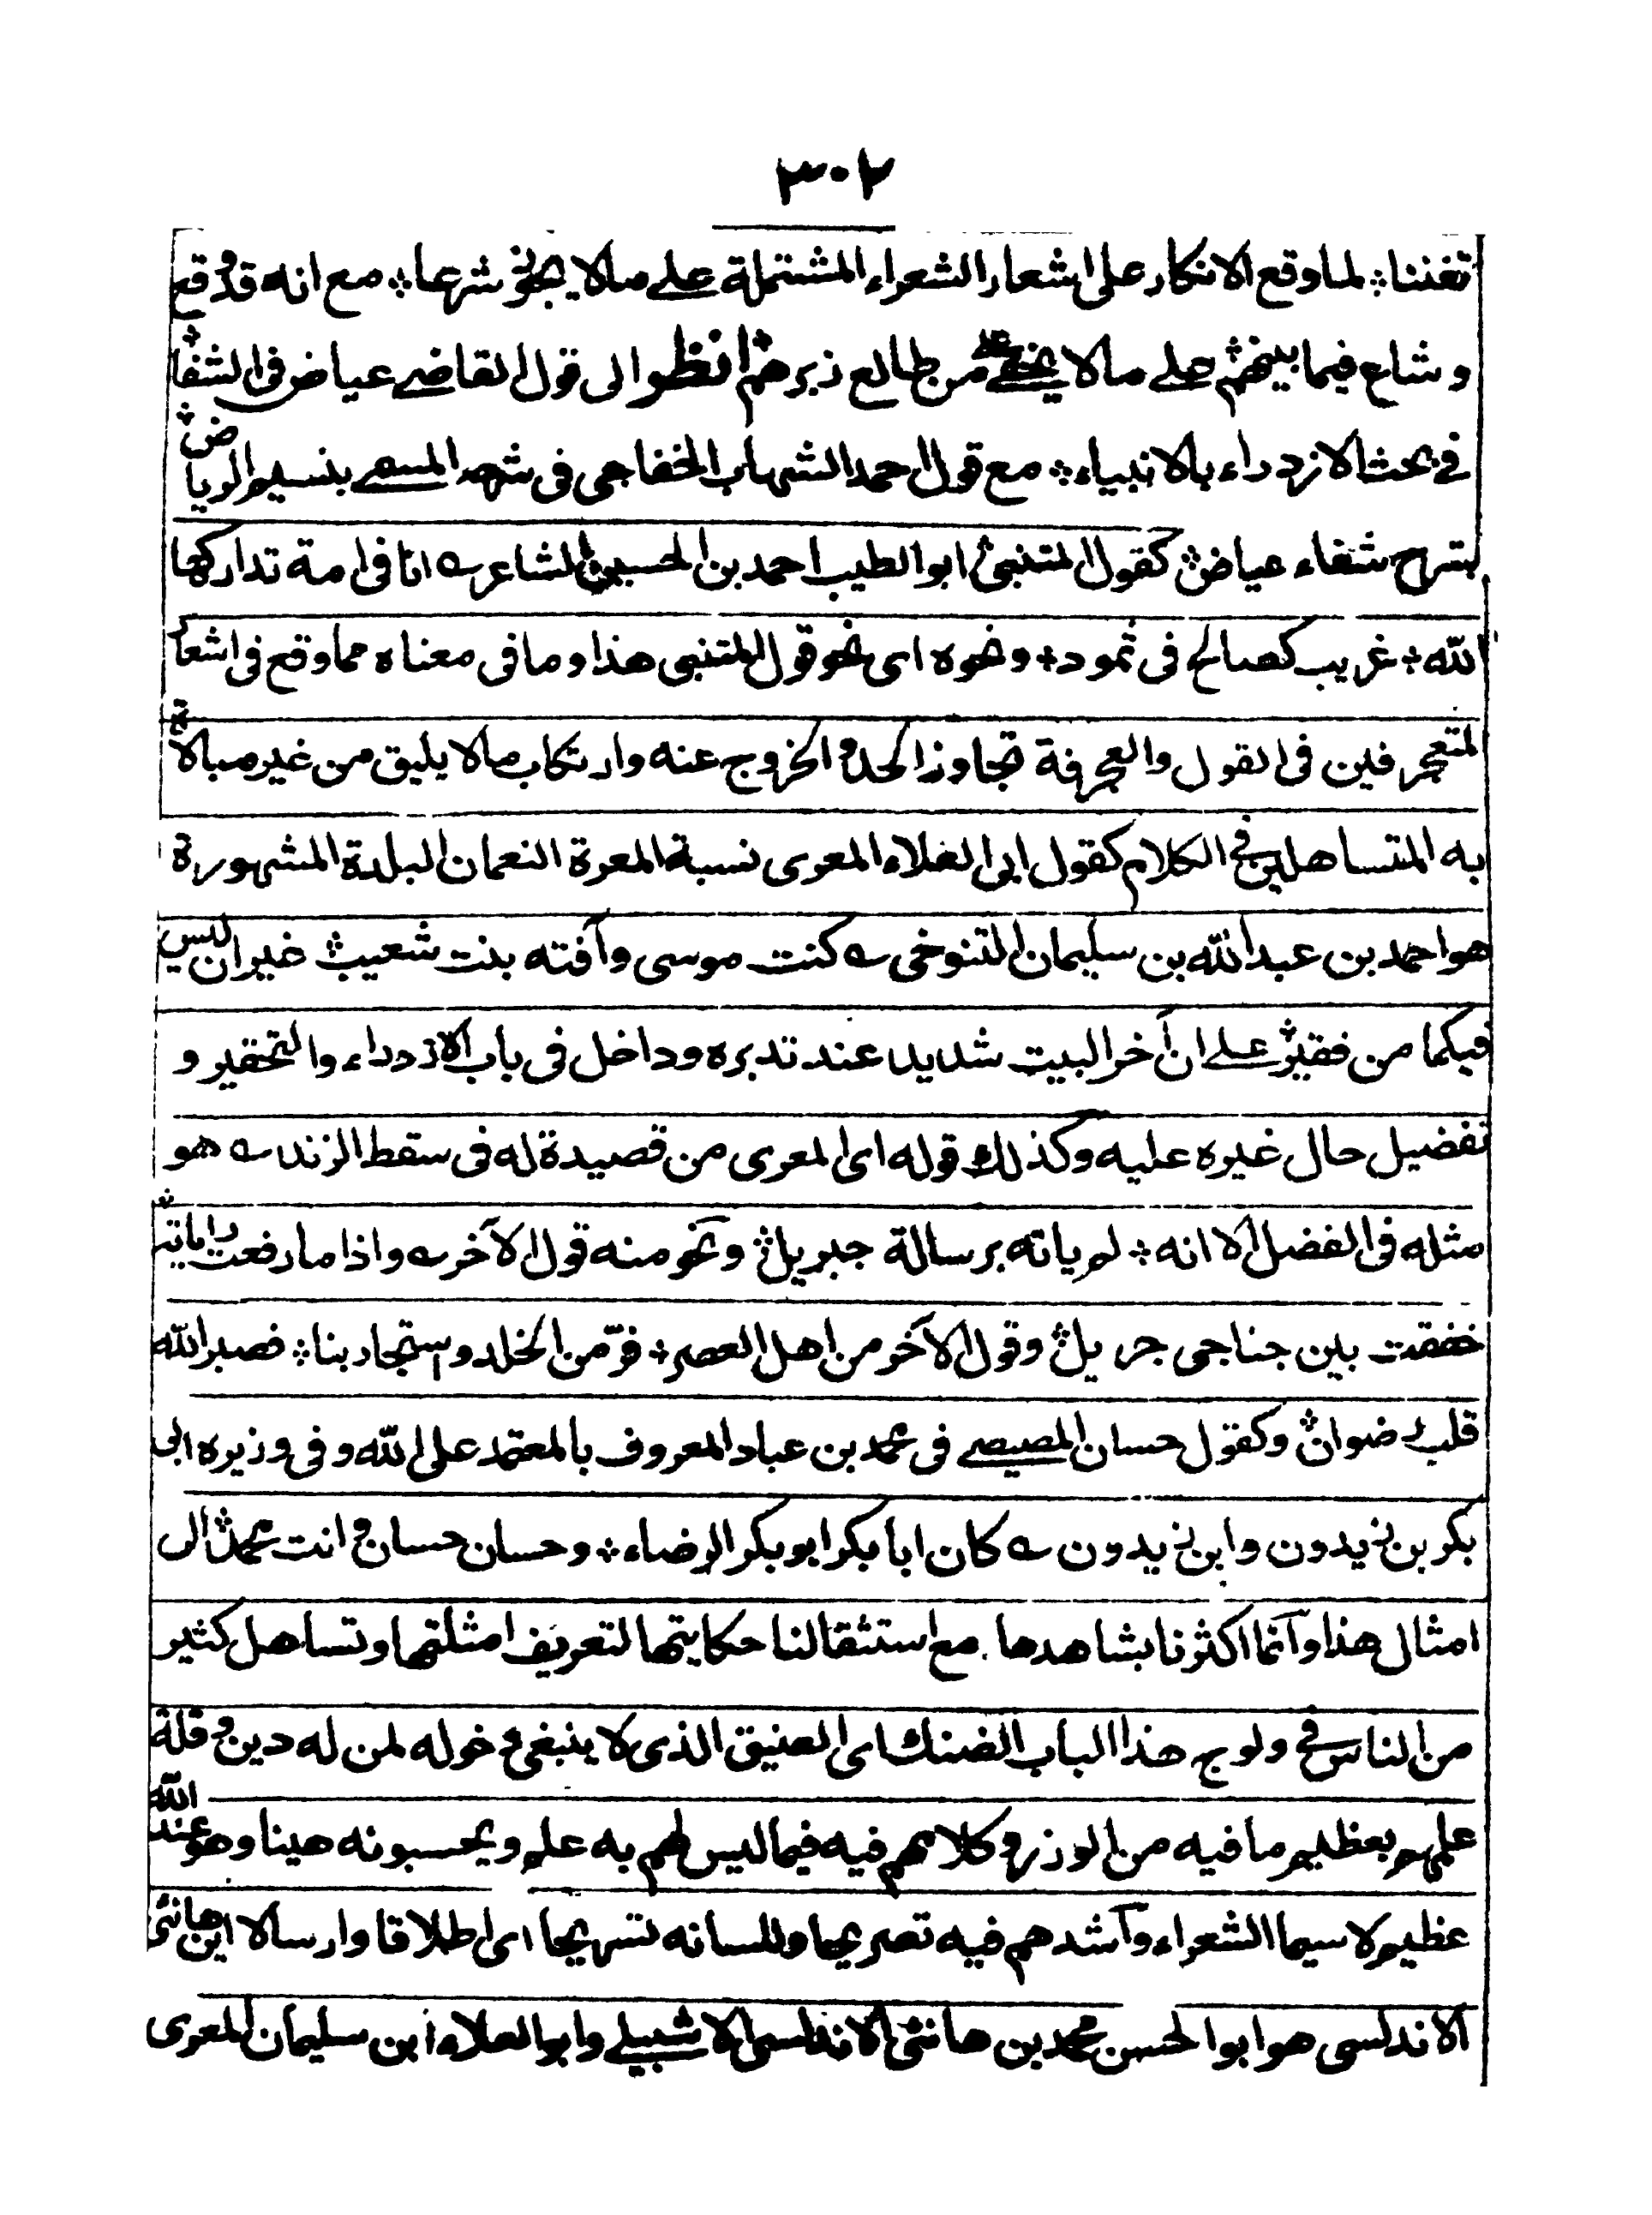 ٣٠٢
تفننا ؞ لما وقع الانكار على اشعار الشعراء المشتملة على مالا يجوز شرعا ؞ مع انه قد وقع
وشاع فيما بينهم ؞ على مالا يخفى على من طالع زبرهم ؞ انظر الى قول القاضى عياض فى الشفا ؞
فى بحث الازدراء بالانبياء ؞ مع قول احمد الشهاب الخفاجى فى شرحه المسمى بنسيم الرياض ؞
بشرح شفاء عياض ؞ كقول المتنبئ ابو الطيب احمد بن الحسين الشاعر ؎ انا فى امة تداركها
الله ؞ غريب كصالح فى ثمود ؞ ونحوه اى نحو قول المتنبى هذا وما فى معناه مما وقع فى اشعار
المتعجرفين فى القول والعجرفة تجاوز الحد والخروج عنه وارتكاب مالا يليق من غير مبالاة
به المتساهلين فى الكلام كقول ابى العلاء المعرى نسبة المعرة النعمان البلدة المشهورة
هو احمد بن عبد الله بن سليمان التنوخى ؎ كنت موسى وآفته بنت شعيب ؞ غير ان ليس
فيكما من فقير ؞ على ان آخر البيت شديد عند تدبره وداخل فى باب الازدراء والتحقير و
تفضيل حال غيره عليه وكذلك قوله اى المعرى من قصيدة له فى سقط الزند ؎ هو
مثله فى الفضل الا انه ؞ لم ياته برسالة جبريل ؞ ونحو منه قول الآخر ؎ واذا ما رفعت راياته ؞
خفقت بين جناحى جبريل ؞ وقول الآخر من اهل العصر ؞ فرّ من الخلد واستجار بنا ؞ فصبر الله
قلب رضوان ؞ وكقول حسان المصيصى فى محمد بن عباد المعروف بالمعتمد على الله وفى وزيره ابى
بكر بن زيدون وابن زيدون ؎ كان ابا بكر ابو بكر الرضاء ؞ وحسان حسان وانت محمد ؞ الى
امثال هذا وآنما اكثرنا بشاهدها مع استثقالنا حكايتها لتعريف امثلتها وتساهل كثير
من الناس فى ولوج هذا الباب الضنك اى الضيق الذى لا ينبغى دخوله لمن له دين وقلة
علمهم بعظيم ما فيه من الوزر وكلامهم فيه فيما ليس لهم به علم ويحسبونه هينا وهو عند الله
عظيم لا سيما الشعراء وآشدهم فيه تصريحا وللسانه تسريحا اى اطلاقا وارسالا ابن هانئى
الاندلسى هو ابو الحسن محمد بن هانئى الاندلسى الاشبيلى وابو العلاء ابن سليمان المعرى